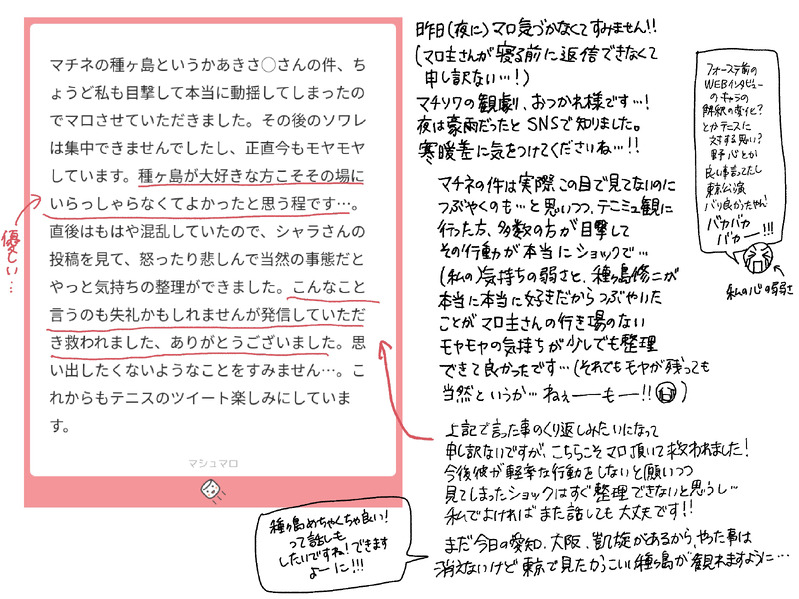 マチネの種ヶ島というかあきさ◯さんの件、ち
ょうど私も目撃して本当に動揺してしまったの
でマロさせていただきました。その後のソワレ
は集中できませんでしたし、正直今もモヤモヤ
しています。種ヶ島が大好きな方こそその場に
いらっしゃらなくてよかったと思う程です…。
直後はもはや混乱していたので、シャラさんの
投稿を見て、怒ったり悲しんで当然の事態だと
やっと気持ちの整理ができました。こんなこと
言うのも失礼かもしれませんが発信していただ
き救われました、ありがとうございました。思
い出したくないようなことをすみません…。こ
れからもテニスのツイート楽しみにしていま
す。
マシュマロ
優しい…
昨日(夜に)マロ気づかなくてすみません!!
(マロ主さんが寝る前に返信できなくて
申し訳ない…!)
マチソワの観劇、おつかれ様です…!
夜は豪雨だったとSNSで知りました。
寒暖差に気をつけてくださいね…!!
マチネの件は実際この目で見てないのに
つぶやくのも…と思いつつ、テニミュ観に
行った方、多数の方が目撃して
その行動が本当にショックで…
(私の)気持ちの弱さと、種ヶ島修二が
本当に本当に好きだからつぶやいた
ことがマロ主さんの行き場のない
モヤモヤの気持ちが少しでも整理
できて良かったです…(それでもモヤが残っても
当然というか…ねぇーーもー!!)
上記で言った事のくり返しみたいになって
申し訳ないですが、こちらこそマロ頂いて救われました!
今後彼が軽率な行動をしないと願いつつ
見てしまったショックはすぐ整理できないと思うし…
私でよければまた話しても大丈夫です!!
まだ今日の愛知、大阪、凱旋があるから、やった事は
消えないけど東京で見たかっこいい種ヶ島が観れますように…
種ヶ島めちゃくちゃ良い!
って話しも
したいですね!できます
よーに!!!
フォーステ前の
WEBインタビュー
のキャラの
解釈の変化?
とかテニスに
対する思い?
野心とか
良い事言ってたし
東京公演
バリ良かったやん!
バカバカ
バカー!!!
私の心の弱さ